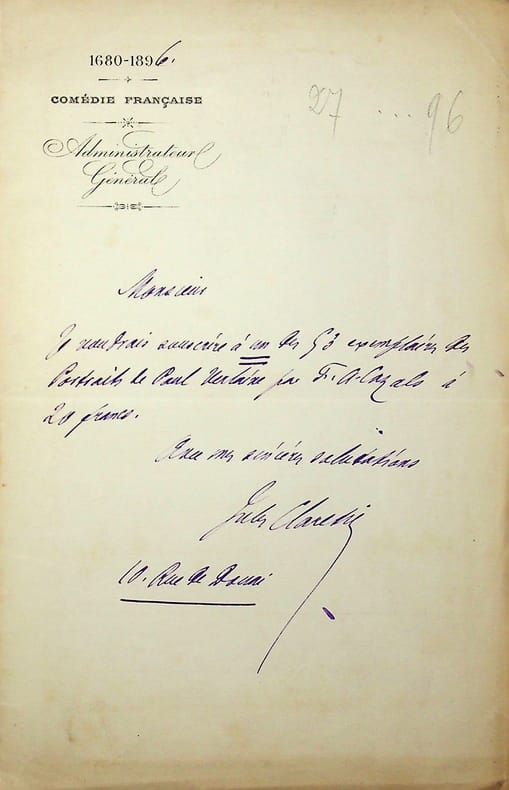 1680-1896.
COMÉDIE FRANÇAISE
Administrateur
Général
27 ... 96
Monsieur
Je voudrais souscrire à un des 53 exemplaires des
Portraits de Paul Verlaine par F. A. Cazals à
20 francs.
Avec mes sincères salutations
Jules Claretie
10. Rue de Douai